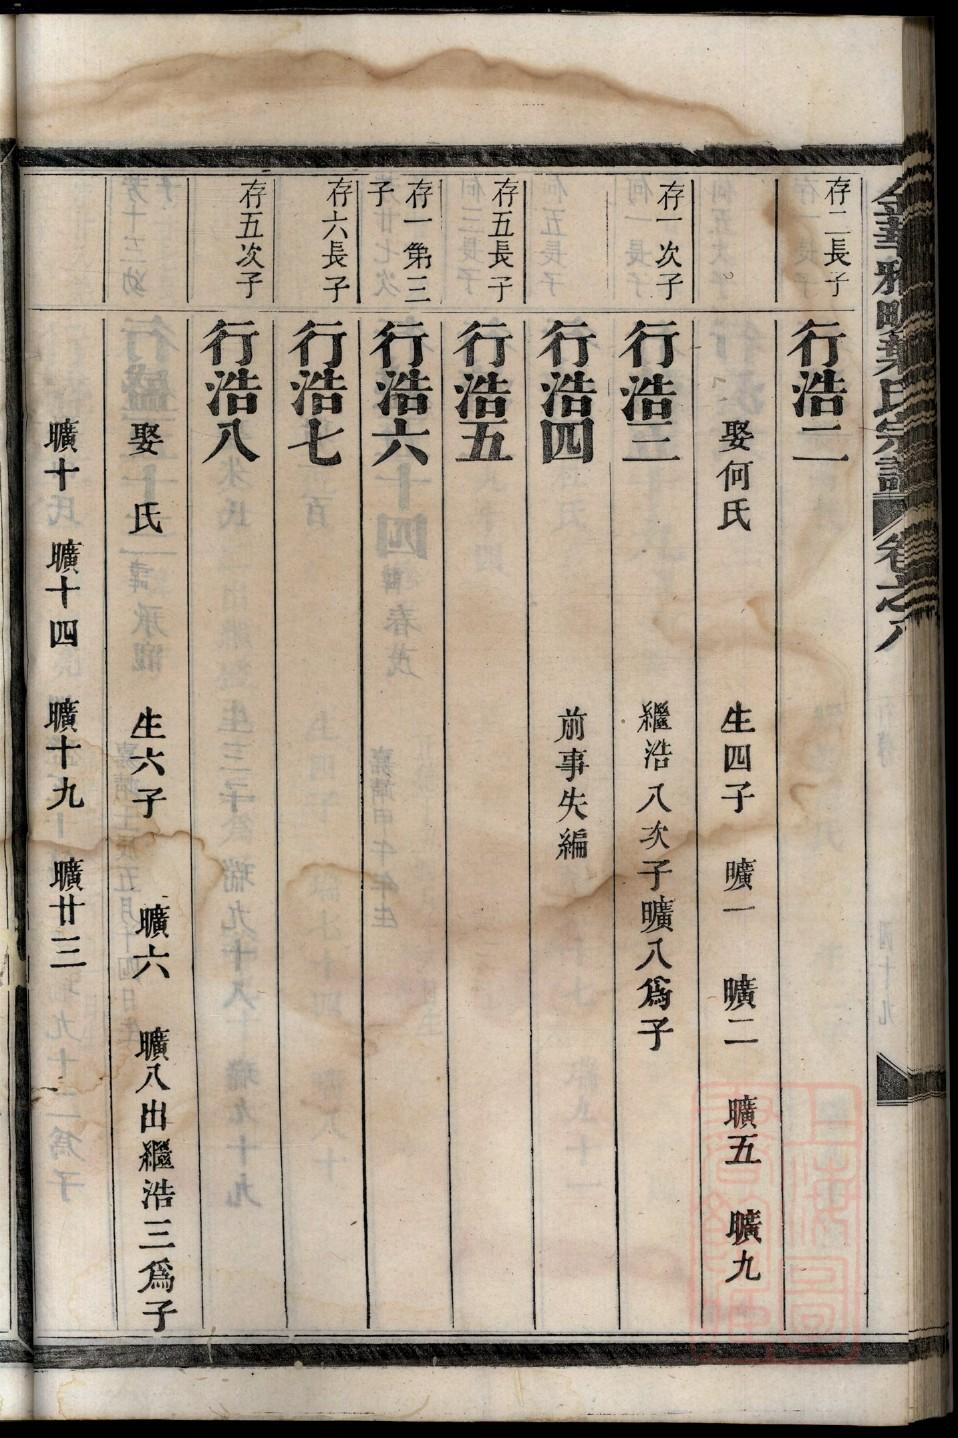 金華雅畈葉氏宗譜 卷之八
存二長子
行浩二
娶何氏 生四子 曠一 曠二 曠五 曠九
存一次子
行浩三
繼浩八次子曠八爲子
行浩四
前事失編
存五長子
行浩五
存一第三子
行浩六
存六長子
行浩七
存五次子
行浩八
娶 氏 生六子 曠六 曠八出繼浩三爲子
曠十 曠十四 曠十九 曠廿三